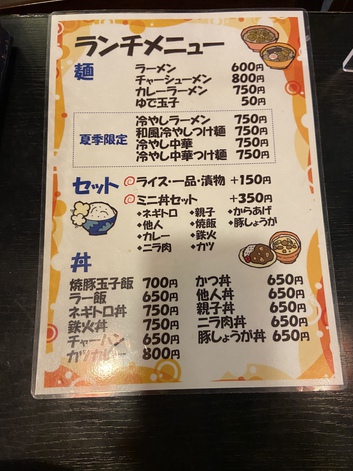 ランチメニュー
麺
ラーメン 600円
チャーシューメン 800円
カレーラーメン 750円
ゆで玉子 50円
夏季限定
冷やしラーメン 750円
和風冷やしつけ麺 750円
冷やし中華 750円
冷やし中華つけ麺 750円
セット
ライス・一品・漬物 +150円
ミニ丼セット +350円
◆ネギトロ ◆親子 ◆からあげ
◆他人 ◆焼飯 ◆豚しょうが
◆カレー ◆鉄火
◆ニラ肉 ◆カツ
丼
焼豚玉子飯 700円
ラー飯 650円
ネギトロ丼 750円
鉄火丼 750円
チャーハン 650円
カツカレー 800円
かつ丼 650円
他人丼 650円
親子丼 650円
ニラ肉丼 650円
豚しょうが丼 650円